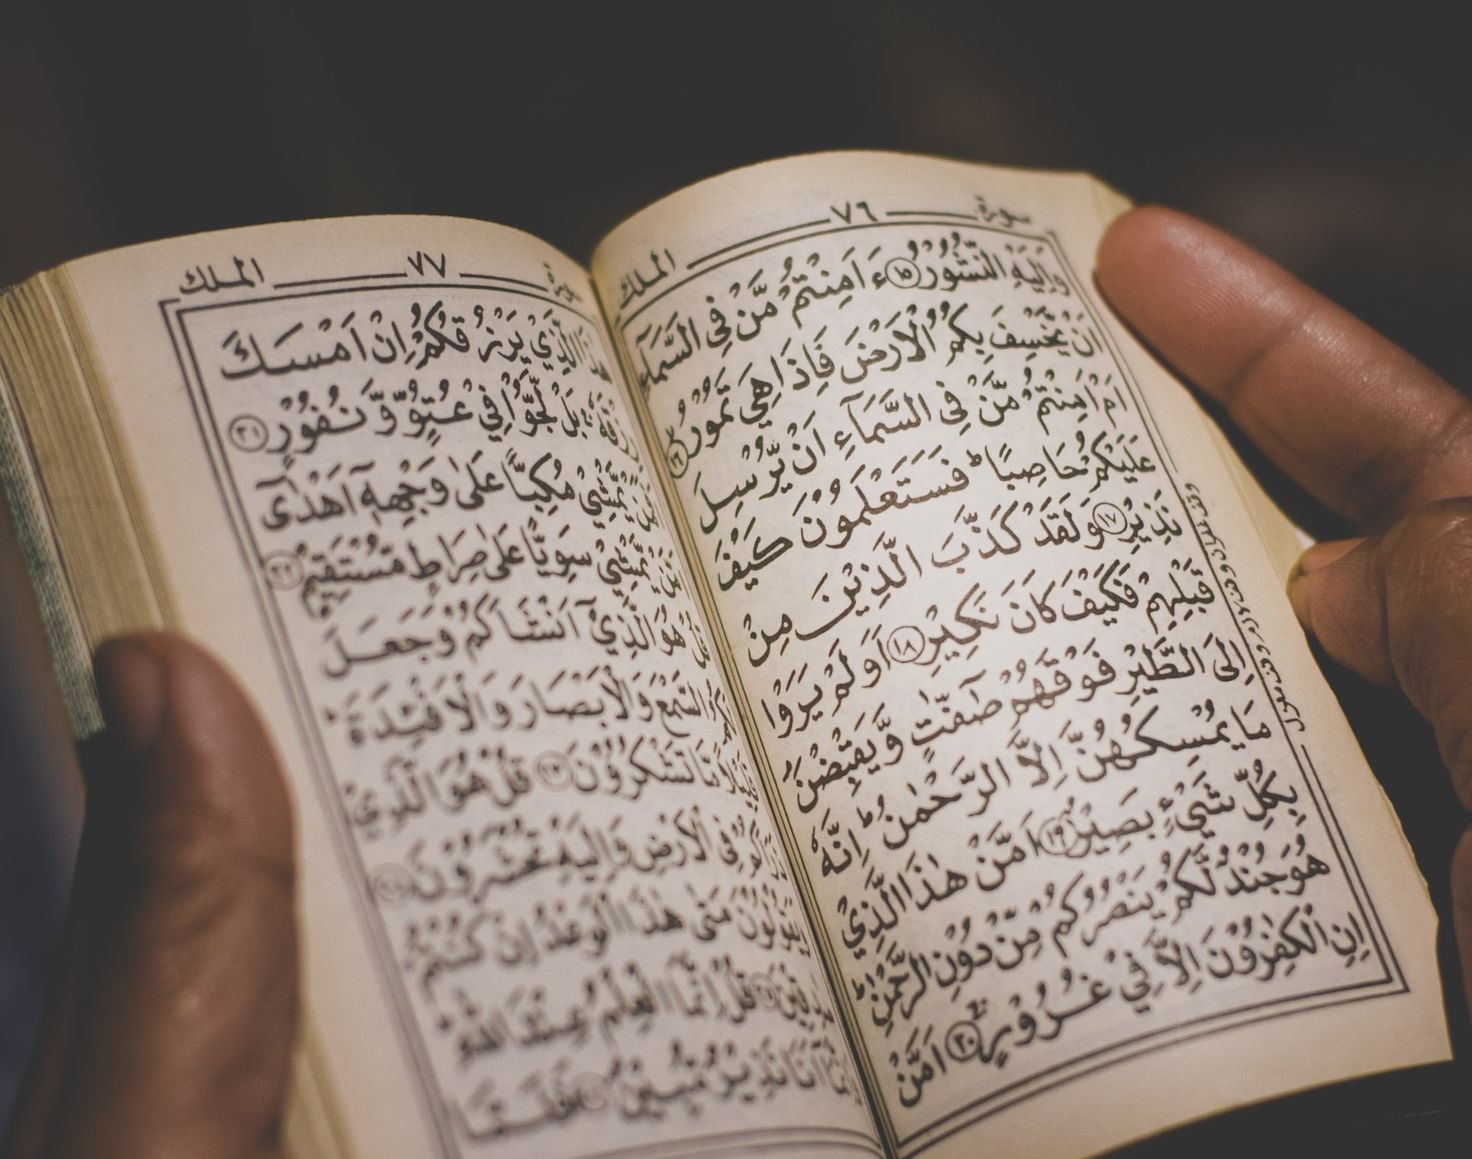 سورة ٧٦ الملك
وَاِلَيْهِ النُّشُوْرُ ۝١٥ ءَاَمِنْتُمْ مَّنْ فِى السَّمَآءِ
اَنْ يَّخْسِفَ بِكُمُ الْاَرْضَ فَاِذَا هِيَ تَمُوْرُ ۝١٦
اَمْ اَمِنْتُمْ مَّنْ فِى السَّمَآءِ اَنْ يُّرْسِلَ
عَلَيْكُمْ حَاصِبًا ؕ فَسَتَعْلَمُوْنَ كَيْفَ
نَذِيْرِ ۝١٧ وَلَقَدْ كَذَّبَ الَّذِيْنَ مِنْ
قَبْلِهِمْ فَكَيْفَ كَانَ نَكِيْرِ ۝١٨ اَوَلَمْ يَرَوْا
اِلَى الطَّيْرِ فَوْقَهُمْ صٰٓفّٰتٍ وَّيَقْبِضْنَ ؕ
مَا يُمْسِكُهُنَّ اِلَّا الرَّحْمٰنُ ؕ اِنَّهٗ
بِكُلِّ شَيْءٍۭ بَصِيْرٌ ۝١٩ اَمَّنْ هٰذَا الَّذِيْ
هُوَ جُنْدٌ لَّكُمْ يَنْصُرُكُمْ مِّنْ دُوْنِ الرَّحْمٰنِ ؕ
اِنِ الْكٰفِرُوْنَ اِلَّا فِيْ غُرُوْرٍ ۝٢٠ اَمَّنْ
سورة ٧٧ الملك
هٰذَا الَّذِيْ يَرْزُقُكُمْ اِنْ اَمْسَكَ
رِزْقَهٗ ۚ بَلْ لَّجُّوْا فِيْ عُتُوٍّ وَّنُفُوْرٍ ۝٢١
اَفَمَنْ يَّمْشِيْ مُكِبًّا عَلٰى وَجْهِهٖٓ اَهْدٰٓى
اَمَّنْ يَّمْشِيْ سَوِيًّا عَلٰى صِرَاطٍ مُّسْتَقِيْمٍ ۝٢٢
قُلْ هُوَ الَّذِيْٓ اَنْشَاَكُمْ وَجَعَلَ
لَكُمُ السَّمْعَ وَالْاَبْصَارَ وَالْاَفْئِدَةَ ؕ
قَلِيْلًا مَّا تَشْكُرُوْنَ ۝٢٣ قُلْ هُوَ الَّذِيْ
ذَرَاَكُمْ فِى الْاَرْضِ وَاِلَيْهِ تُحْشَرُوْنَ ۝٢٤
وَيَقُوْلُوْنَ مَتٰى هٰذَا الْوَعْدُ اِنْ كُنْتُمْ
صٰدِقِيْنَ ۝٢٥ قُلْ اِنَّمَا الْعِلْمُ عِنْدَ اللّٰهِ ۪
وَاِنَّمَآ اَنَا نَذِيْرٌ مُّبِيْنٌ ۝٢٦ فَلَمَّا